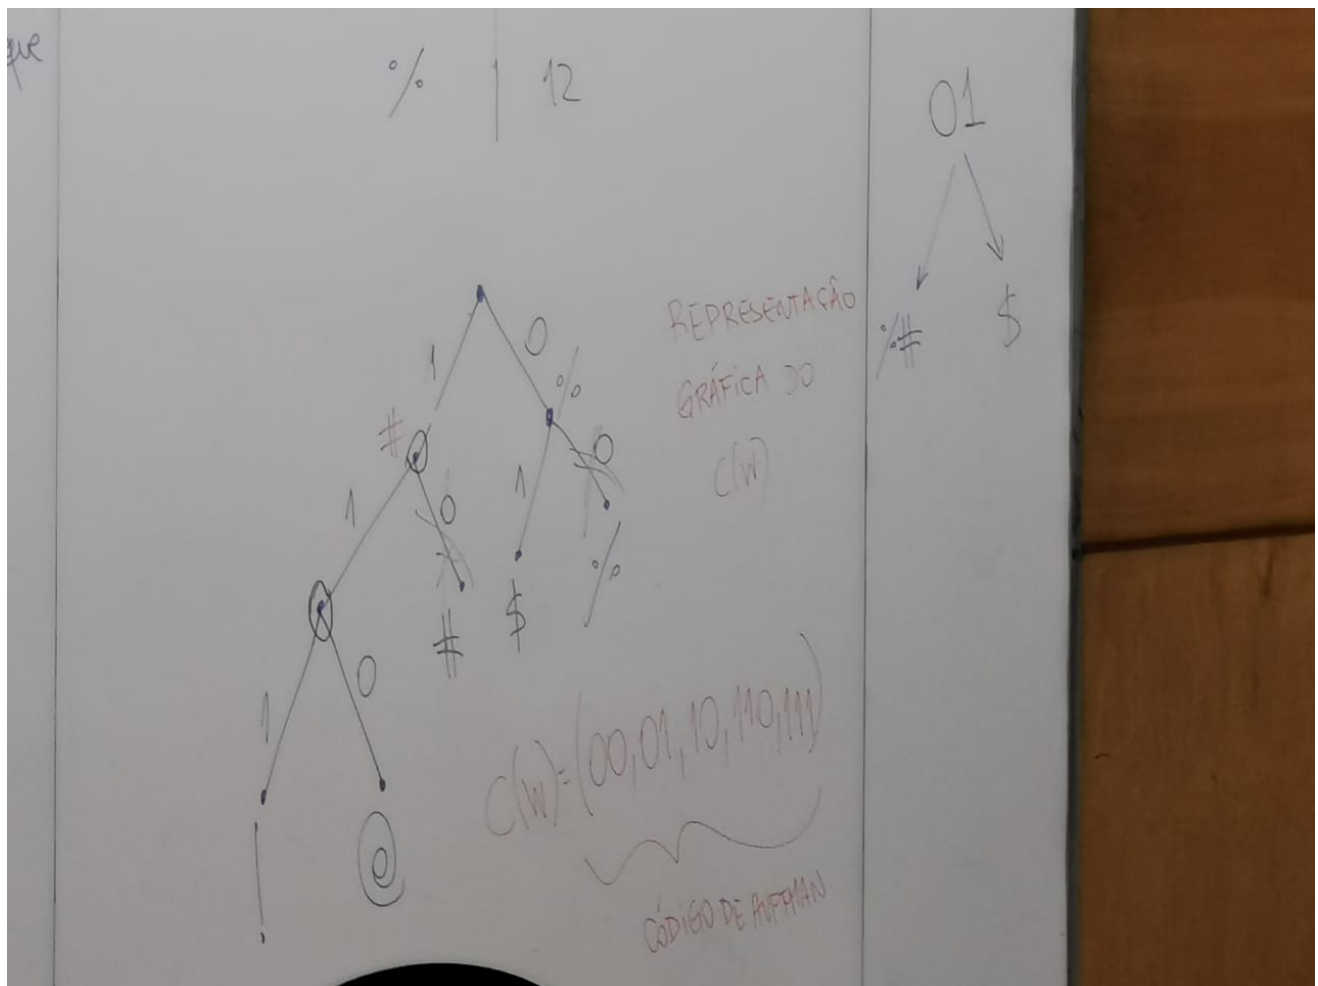 que
% | 12
01
%# $
1 0
# %
1 0 1 0
# $ %
1 0
! @
REPRESENTAÇÃO
GRÁFICA DO
C(W)
C(W)=(00,01,10,110,111)
CÓDIGO DE HUFFMAN